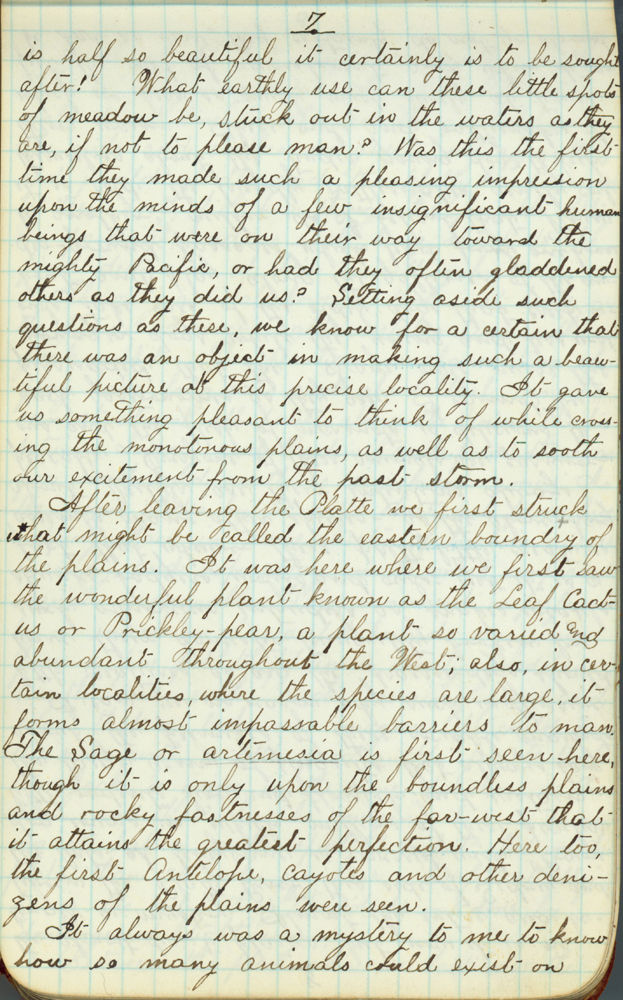 7.
is half so beautiful it certainly is to be sought
after! What earthly use can these little spots
of meadow be, stuck out in the waters as they
are, if not to please man? Was this the first
time they made such a pleasing impression
upon the minds of a few insignificant human
beings that were on their way toward the
mighty Pacific, or had they often gladdened
others as they did us? Setting aside such
questions as these, we know for a certain that
there was an object in making such a beau-
tiful picture at this precise locality. It gave
us something pleasant to think of while cross-
ing the monotonous plains, as well as to sooth
our excitement from the past storm.
After leaving the Platte we first struck
what might be called the eastern boundry of
the plains. It was here where we first saw
the wonderful plant known as the Leaf Cact-
us or Prickley-pear, a plant so varied and
abundant throughout the West; also, in cer-
tain localities, where the species are large, it
forms almost impassable barriers to man.
The Sage or artemesia is first seen here,
though it is only upon the boundless plains
and rocky fastnesses of the far-west that
it attains the greatest perfection. Here too,
the first Antelope, cayotes and other deni-
zens of the plains were seen.
It always was a mystery to me to know
how so many animals could exist on